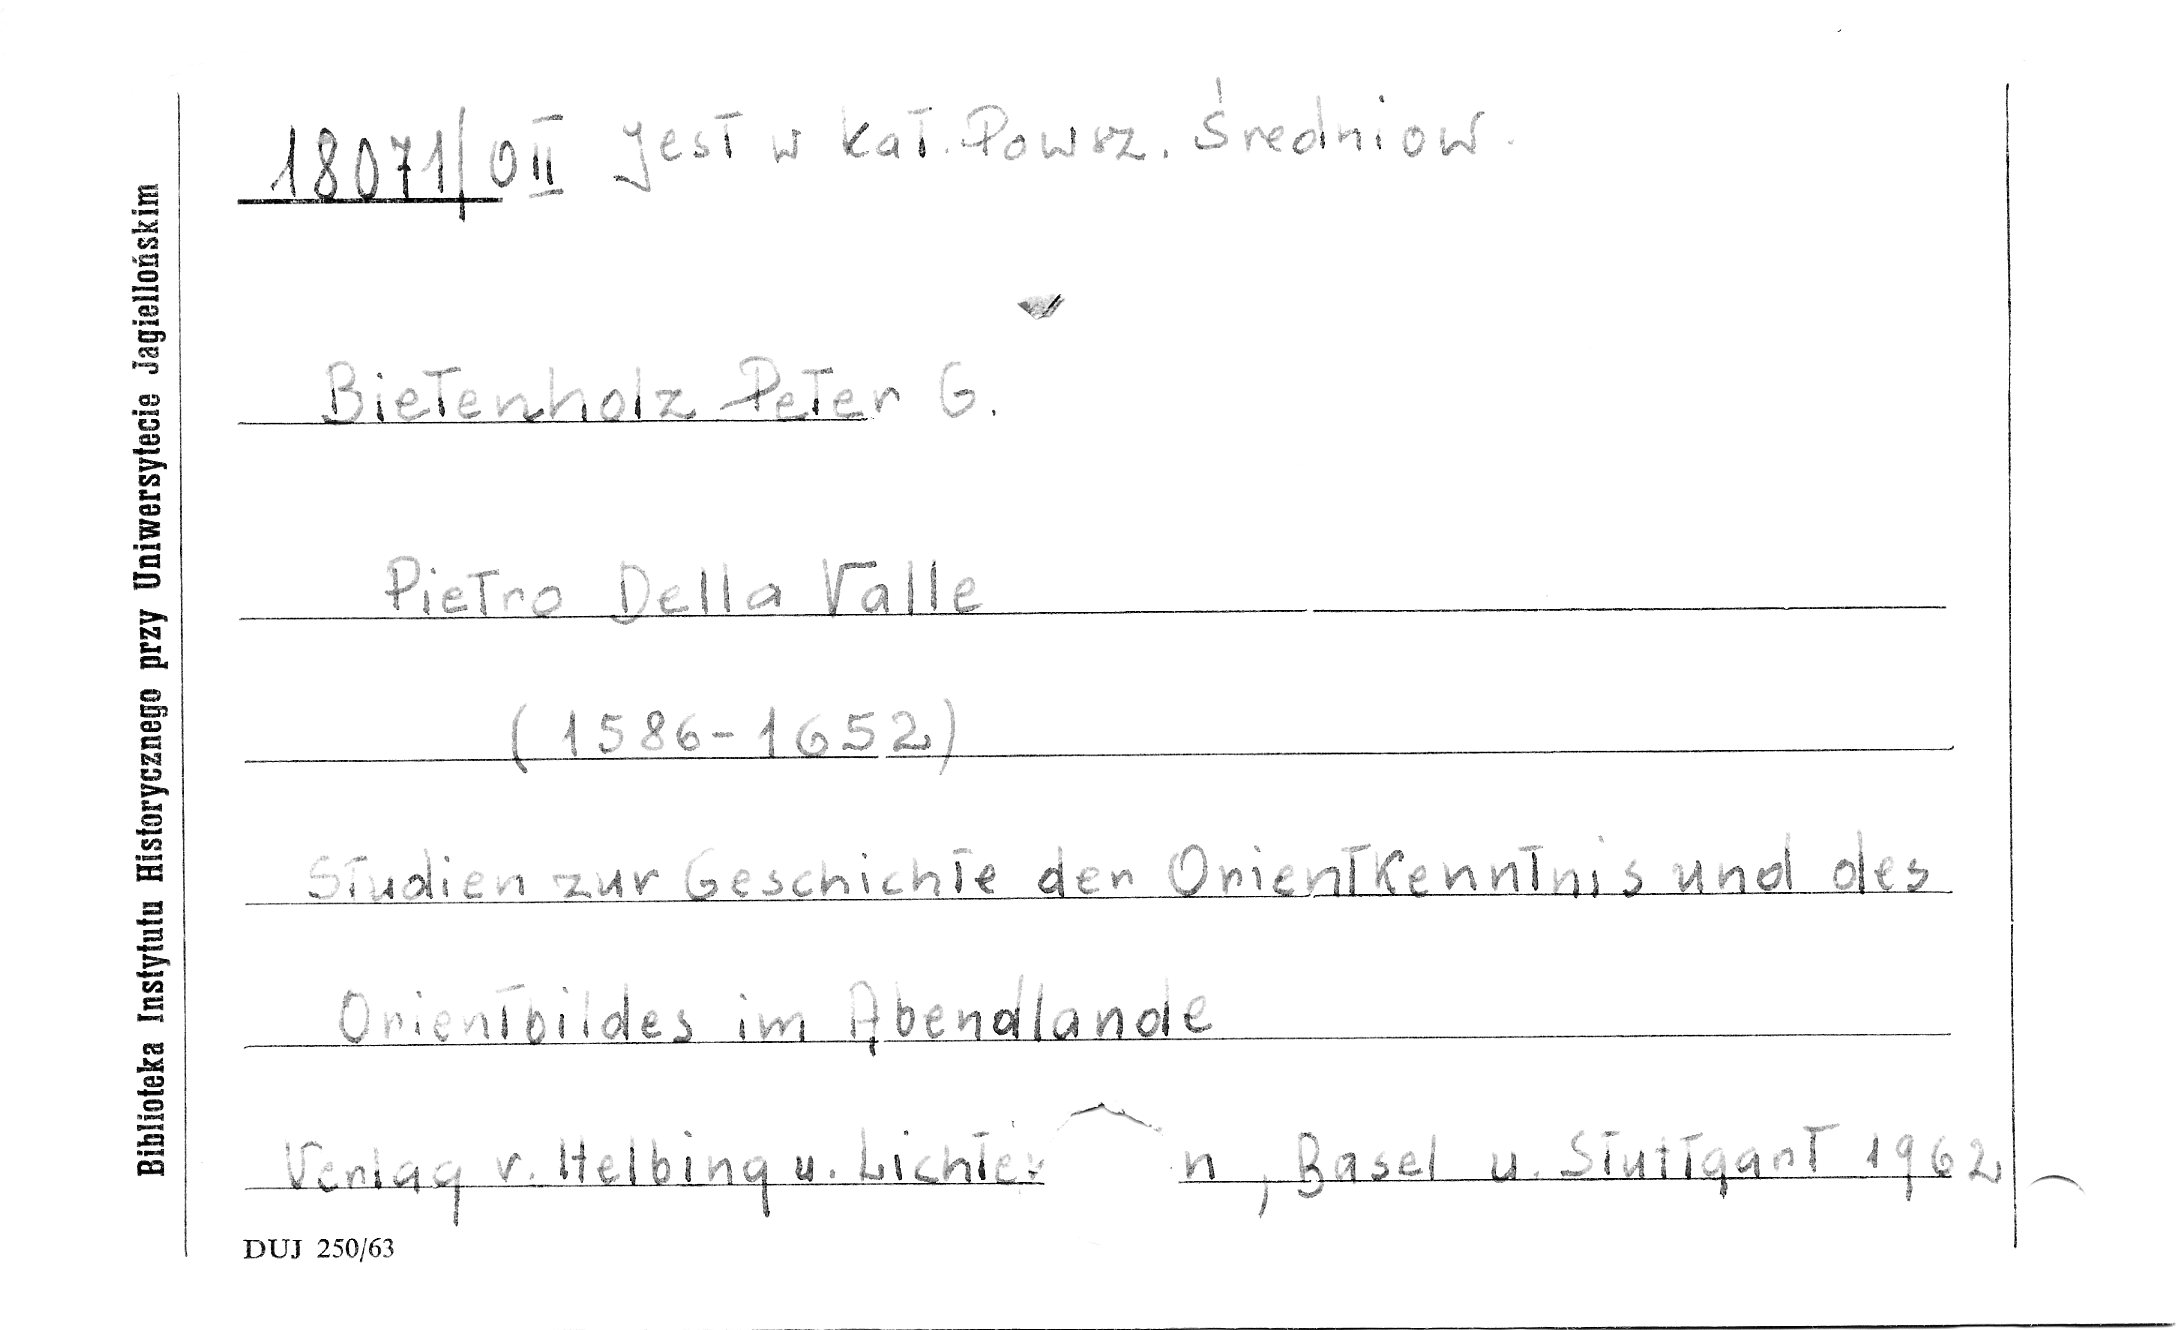 18071/OII Jest w kat. Powsz. Średniow.
Bietenholz Peter G.
Pietro Della Valle
(1586-1652)
Studien zur Geschichte der Orientkenntnis und des
Orientbildes im Abendlande
Verlag v. Helbing u. , Basel u. Stuttgart 1962
DUJ 250/63
Biblioteka Instytutu Historycznego przy Uniwersytecie Jagiellońskim